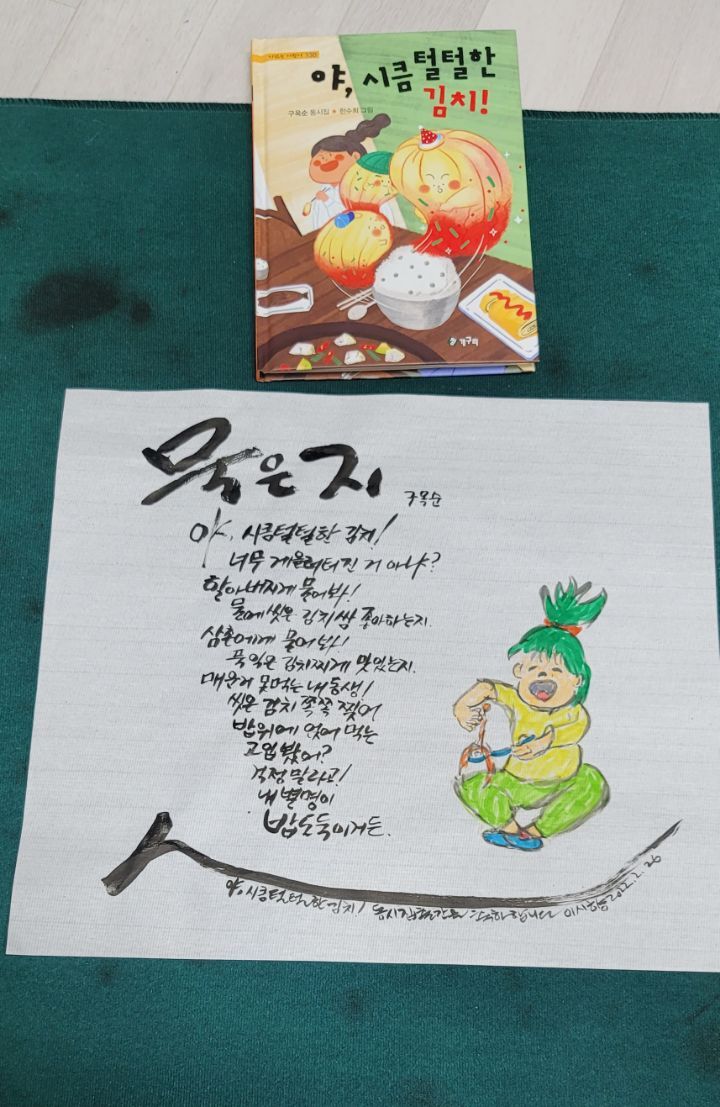 야, 시큼털털한
김치!
구옥순 동시집 ★ 한수희 그림
개구리
묵은지
구옥순
야, 시큼털털한 김치!
너무 게을러터진 거 아냐?
할아버지께 물어봐!
물에 씻은 김치쌈 좋아하는지.
삼촌에게 물어봐!
푹 익은 김치찌개 맛있는지.
매운거 못먹는 내동생!
씻은 김치 쪽쪽 찢어
밥위에 얹어 먹는
고 입 봤어?
걱정 말라고!
내 별명이
밥도둑이거든.
야, 시큼털털한 김치! 동시집 축하합니다 2022. 2. 26